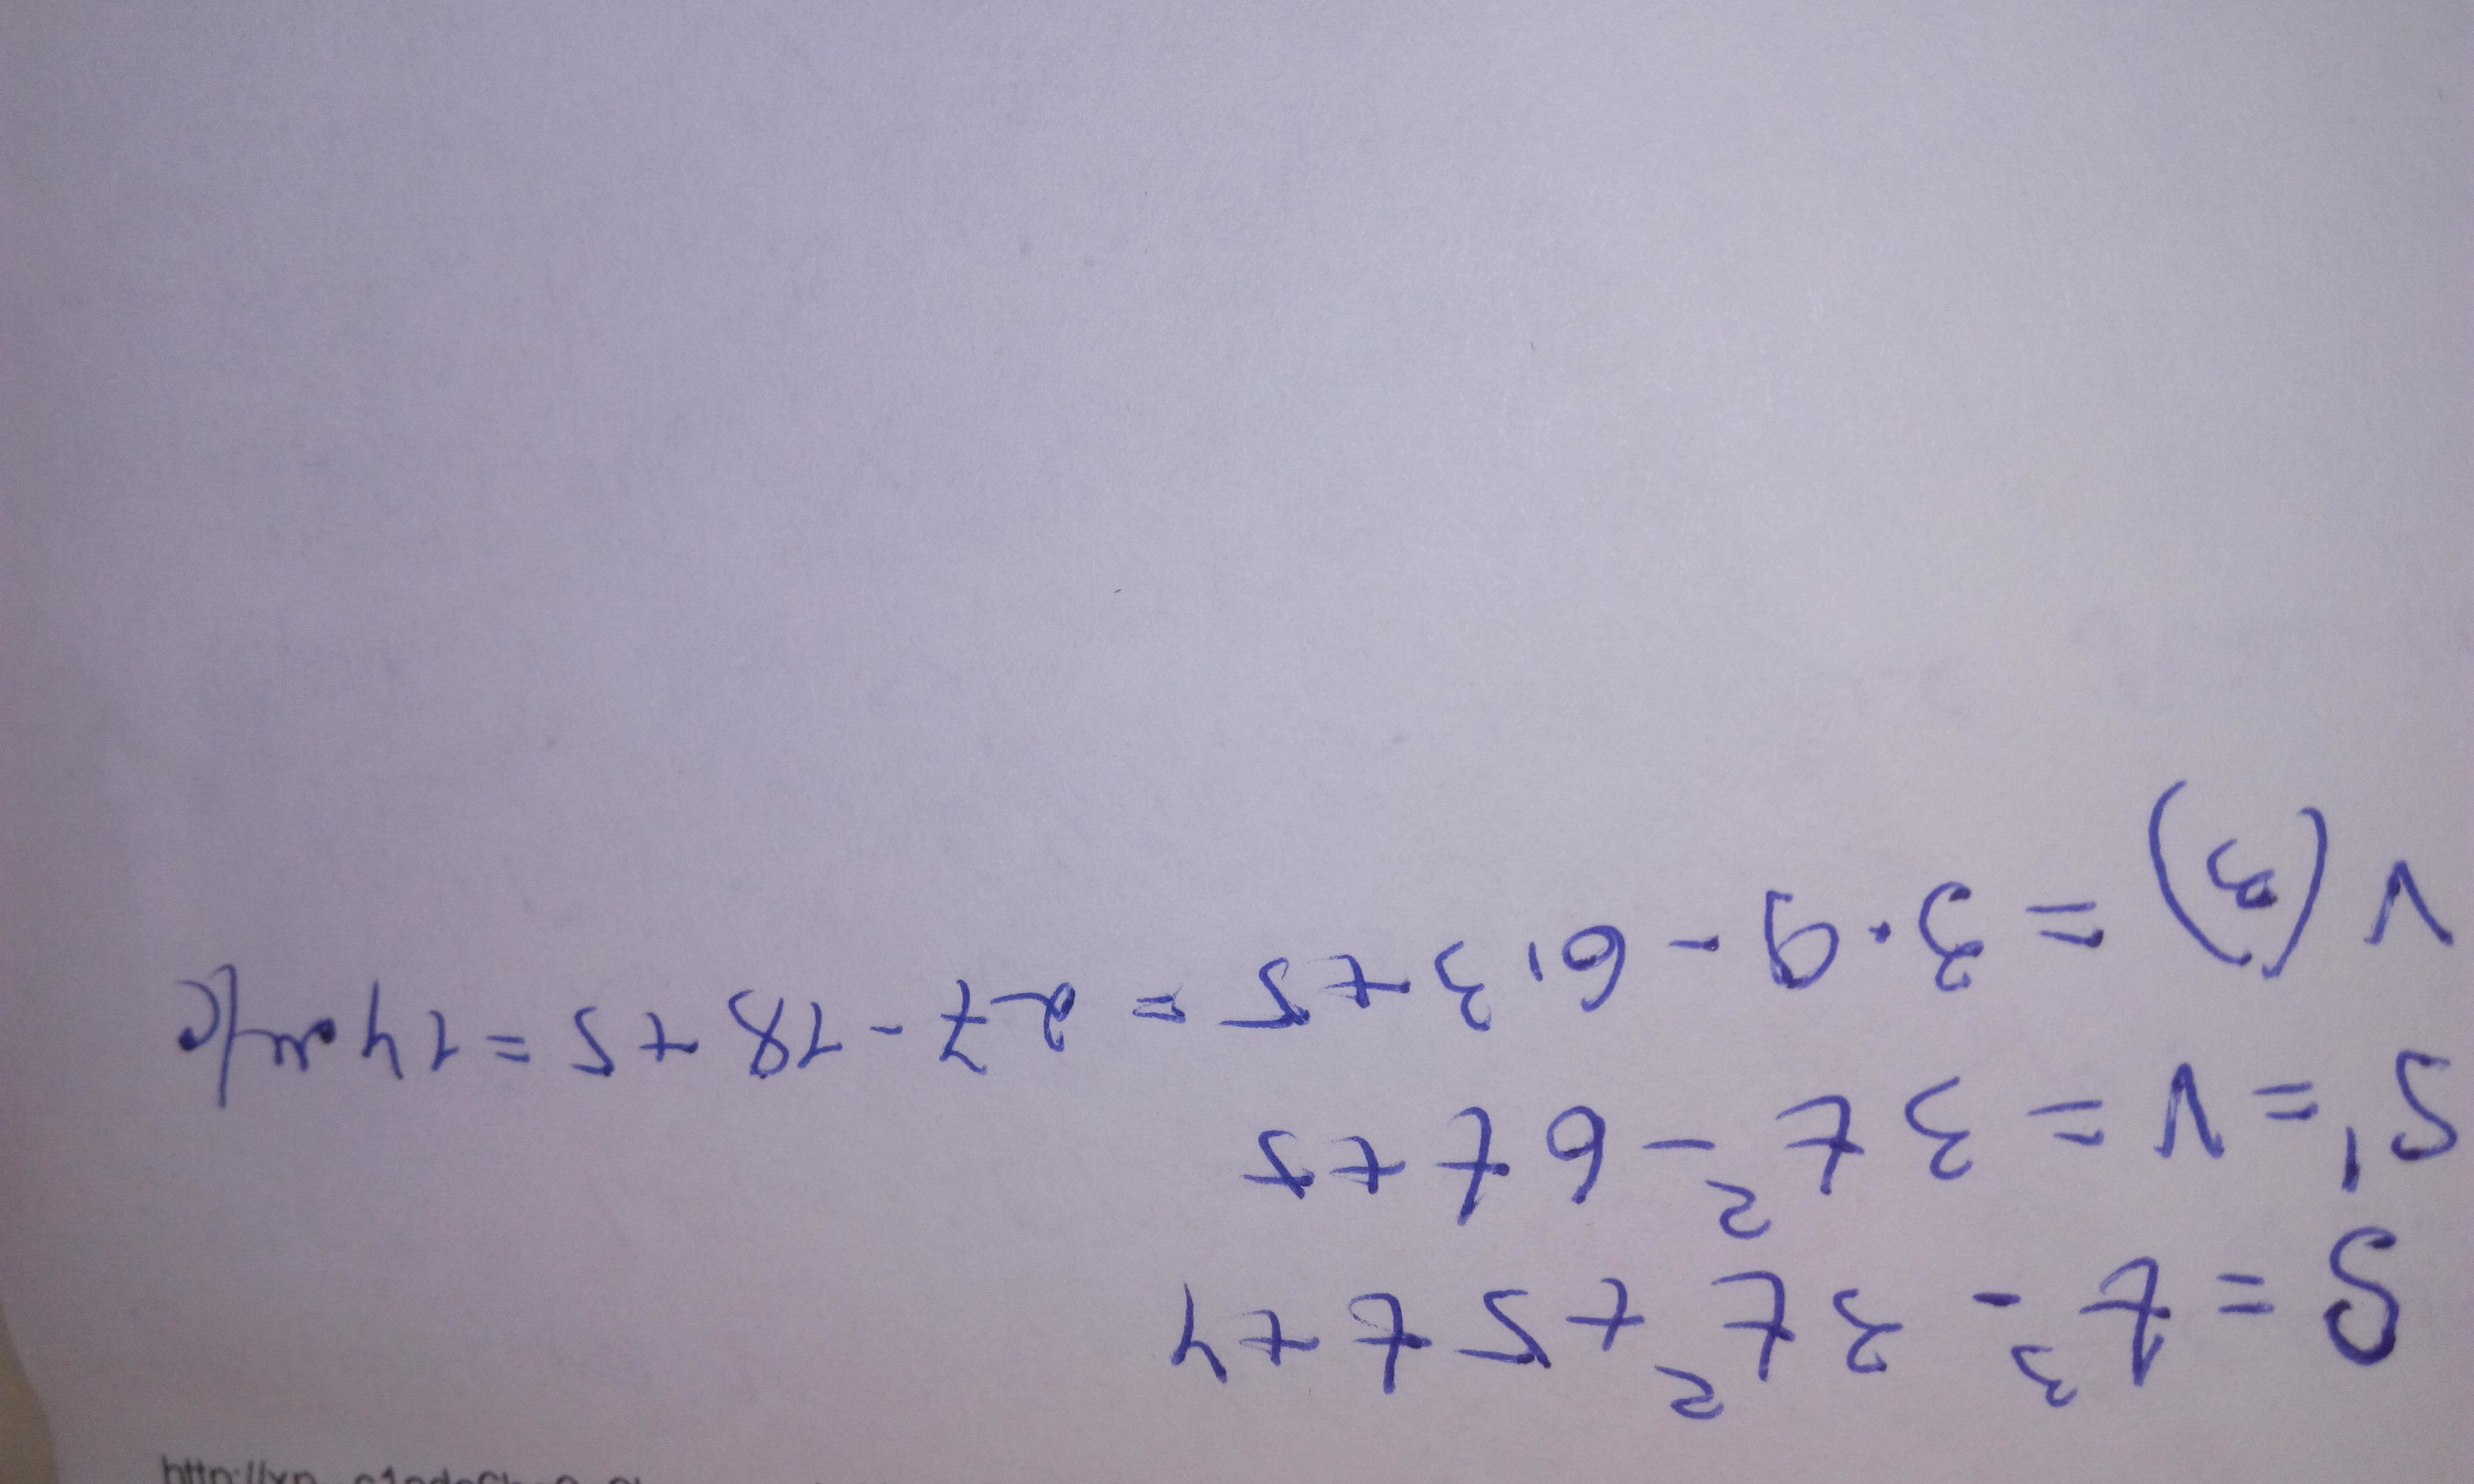 S = t³ - 3t² + 5t + 4
S' = V = 3t² - 6t + 5
V(3) = 3·9 - 6·3 + 5 = 27 - 18 + 5 = 14 м/с